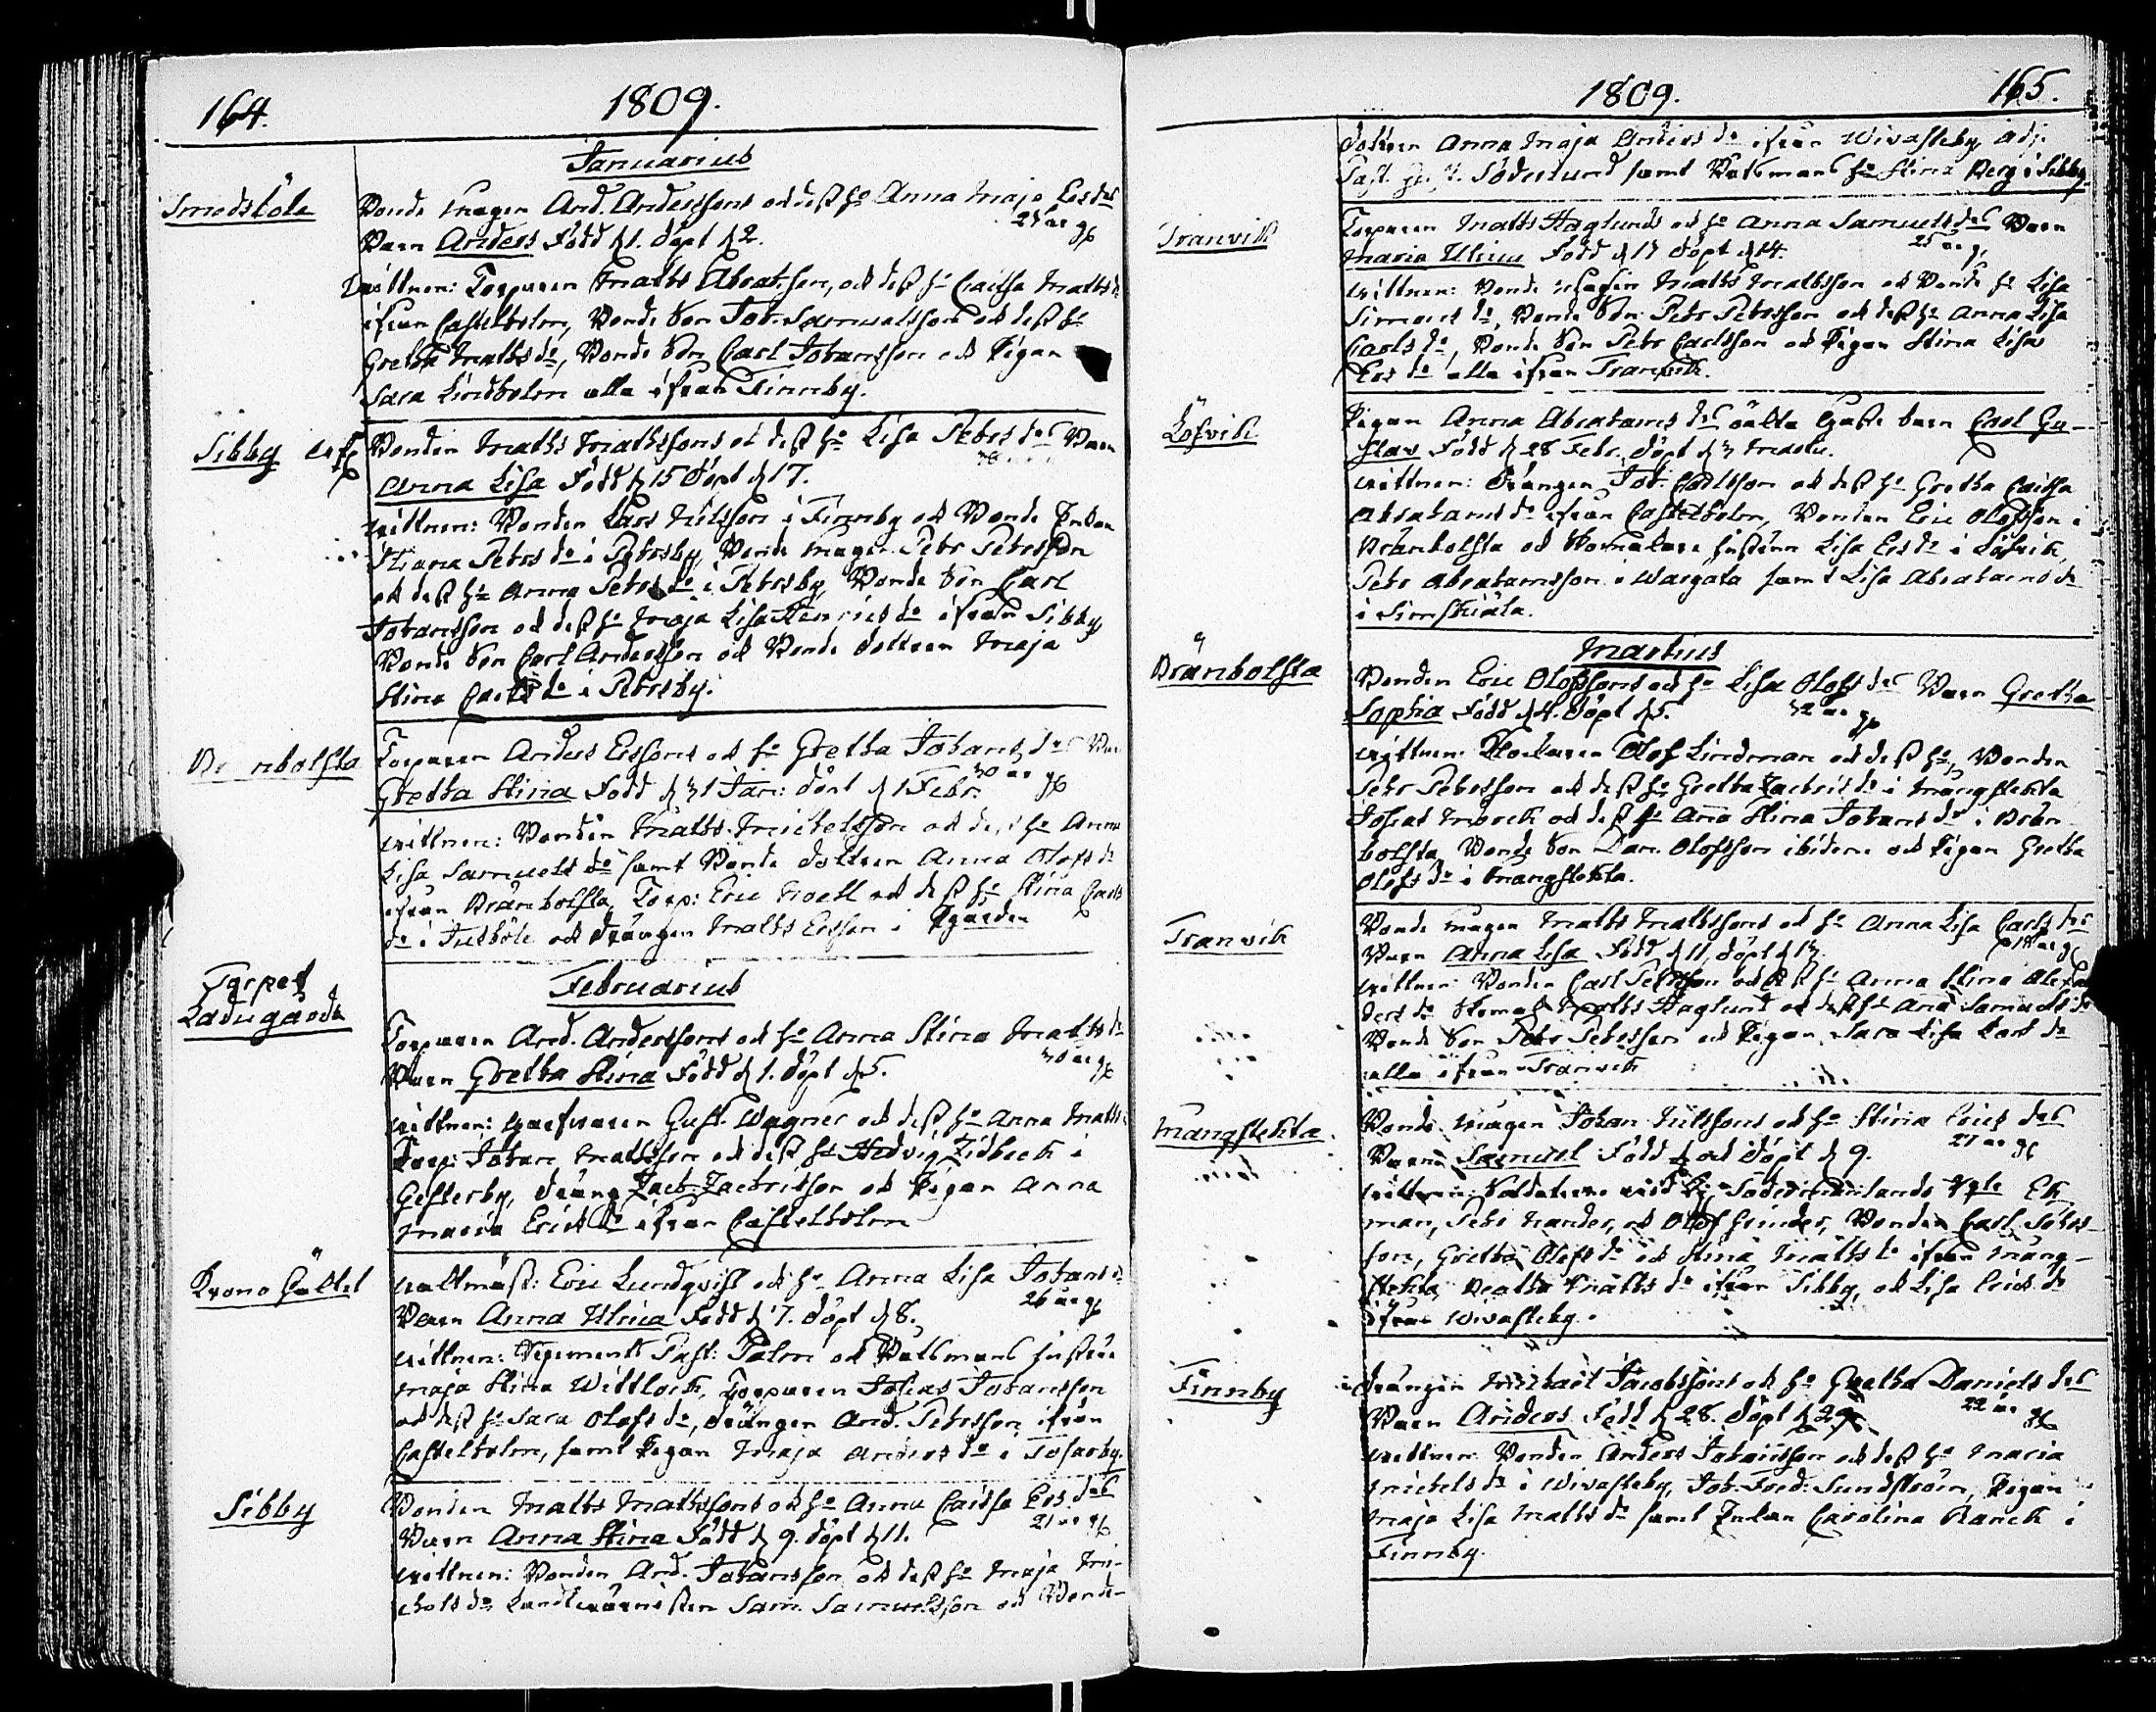 164.
1809.
Januarius
Smedsböle
Bonde Magen And. Anderssons och dess h. Anna Maja Ersdrs
25 år gl
Barn Anders Född d 1. döpt d 2.
Wittnen: Torparen Matts Abrah.son, och dess h. Caisa Mattsdr
ifrån Castelholm, Bonde Son Joh. Samuelsson och dess hu
Gretha Mattsdr, Bonde Son Carl Johansson och Pigan
Sara Lindholm alla ifrån Finnby.
Sibby
Bonden Matts Mattssons och dess h. Lisa Pehrsdrs Barn
Anna Lisa Född d 15 döpt d 17.
Wittnen: Bonden Lars Nilsson i Finnby och Bonde Enkan
Maria Pehrsdr i Pehrsby, Bonde Magen Pehr Pehrsson
och dess h. Anna Pehrsdr i Pehrsby, Bonde Son Carl
Johansson och dess h. Maja Lisa Henricsdr ifrån Sibby
Bonde Son Carl Andersson och Bonde dottren Maja
Stina Carlsdr i Pehrsby.
Bränbolsta
Torparen Anders Erssons och h. Gretha Johansdrs
30 år gl
Gretha Stina Född d 31 Jan: döpt d 1 Febr.
Wittnen: Bonden Matts Michelsson och dess h. Anna
Lisa Samuelsdr samt Bonde dottren Anna Olofsdr
ifrån Bränbolsta, Torp: Eric och dess h. Stina Carls
dr i och drängen Matts Ersson i
Februarius
Torpet
Ladugårds
Torparen And. Anderssons och h. Anna Stina Mattsdr
30 år gl
Barn Gretha Stina Född d 1. döpt d 5.
Wittnen: Gust. Wagner och dess h. Anna Matts
Torp: Johan Mattsson och dess h. Hedvig Lidbeck i
Gesterby, dräng Zach. Zachrisson och Pigan Anna
Maria Ericsdr ifrån Castelholm
Krono Stället
Waltmäst: Eric Lundqvist och h. Anna Lisa Johansdr
26 år gl
Barn Anna Ulrica Född d 7. döpt d 8.
Wittnen: Regements Past: Palm och Båtsmans hustrun
Maja Stina Wittlock, Torparen Johan Johansson
och dess h. Sara Olofsdr, drängen And. Pehrsson ifrån
Castelholm, samt Pigan Maja Andersdr i Tosarby.
Sibby
Bonden Matts Mattssons och h. Anna Caisa Ersdrs
21 år gl
Barn Anna Stina Född d 9. döpt d 11.
Wittnen: Bonden And. Johansson och dess h. Maja Mi-
chelsdr Sam. Samuelsson och Bonde-
1809.
165.
dottren Anna Maja Andersdr ifrån Wivasteby Adj.
Past. Söderlund samt Båtsmans h. Stina Berg i Sibby.
Tranvik
Torparen Matts Haglunds och h. Anna Samuelsdrs Barn
25 år gl
Maria Ulrica Född d 11 döpt d 14.
Wittnen: Bonde Magen Matts Mattsson och Bonde h. Lisa
Simonsdr, Bonde Son Pehr Pehrsson och dess h. Anna Lisa
Carlsdr, Bonde Son Pehr Carlsson och Pigan Stina Lisa
Ersdr alla ifrån Tranvik.
Löfvik
Pigan Anna Abrahamsdrs oäkta Gosse barn Carl Gu-
stav Född d 28 Febr. döpt d 3 Martii.
Wittnen: Drängen Joh. Carlsson och dess h. Gretha Caisa
Abrahamsdr ifrån Castelholm, Bonden Eric Olofsson i
Bränbolsta och Skomakare hustrun Lisa Ersdr i Löfvik,
Pehr Abrahamsson i Wargata samt Lisa Abrahamsdr
i Simskiäla.
Martius
Bränbolsta
Bonden Eric Olofssons och h. Lisa Olofsdrs Barn Gretha
32 år gl
Sophia Född d 4. döpt d 5.
Wittnen: Klockaren Olof Lindman och dess h., Bonden
Pehr Pehrsson och dess h. Gretha Zachrisdr i Mångstekta
Johan Mörck och dess h. Anna Stina Johansdr i Brän-
bolsta, Bonde Son Dan. Olofsson ibidem och Pigan Gretha
Olofsdr i Mångstekta.
Tranvik
Bonde Magen Matts Mattssons och h. Anna Lisa Carlsdrs
Barn Anna Lisa Född d 11, döpt d 13.
Wittnen: Bonden Carl Pehrsson och dess h. Anna Stina Alexan
dersdr Skomak Matts Haglund och dess h. Anna Samuelsdr
Bonde Son Pehr Pehrsson och Pigan Sara Lisa Carlsdr
alla ifrån Tranvik
Mångstekta.
Bonde Magen Johan Nilssons och h. Stina Ericsdrs
27 år gl
Barn Samuel Född och döpt d 9.
Wittnen: Soldaterne vid Södermanlands Rgte Ek
man, Pehr Nander, och Olof Hinder, Bonden Carl Pehrs-
son, Gretha Olofsdr och Stina Mattsdr ifrån Mång-
stekta, Beatha Mattsdr ifrån Sibby, och Lisa Ericsdr
ifrån Wivasteby.
Finnby
Drängen Michael Jacobssons och h. Gretha Danielsdrs
22 år gl
Barn Anders Född d 28. döpt d 29.
Wittnen: Bonden Anders Johansson och dess h. Maria
Michelsdr i Wivasteby, Joh. Fred. Sundström, Pigan
Maja Lisa Mattsdr samt Enkan Carolina Ranck i
Finnby.